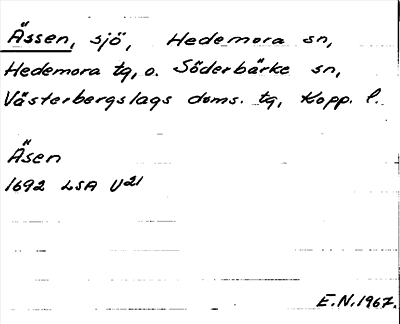 Ässen, sjö, Hedemora sn,
Hedemora tg, o. Söderbärke sn,
Västerbergslags doms. tg, Kopp. l.
Äsen
1692 LSA U21
E.N. 1967.